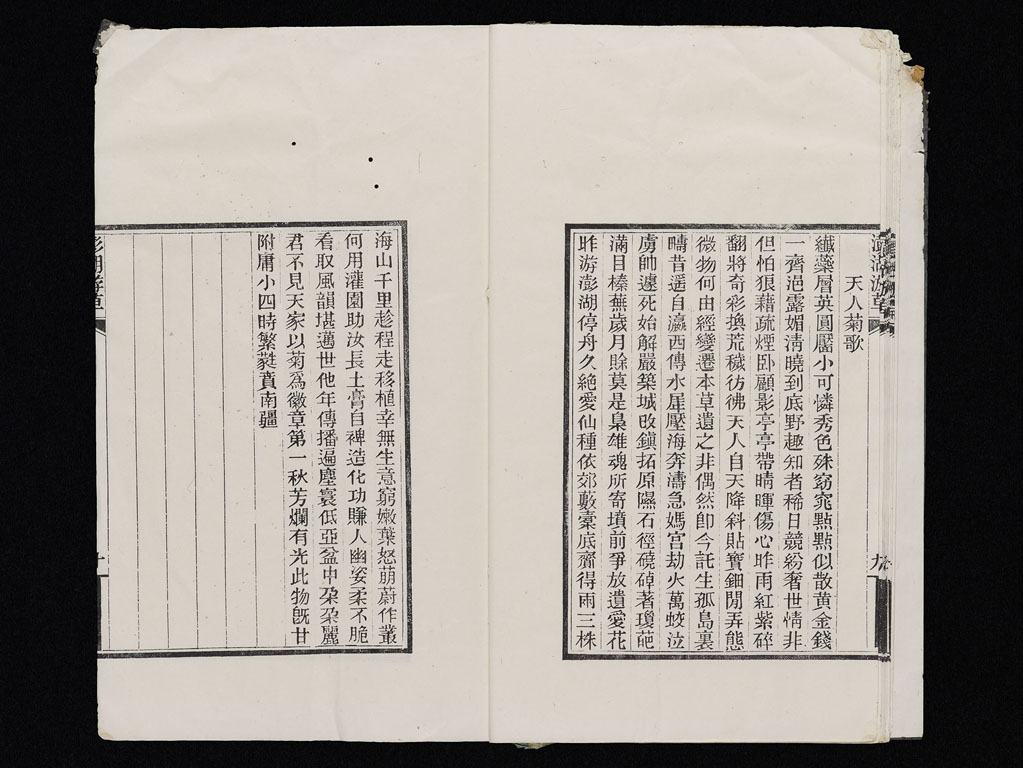 澎湖游草
九
天人菊歌
纖蘂層英圓靨小可憐秀色殊窈窕點點似散黄金錢
一齊浥露媚清曉到底野趣知者稀日競紛奢世情非
但怕狼藉疏煙卧顧影亭亭帶晴暉傷心昨雨紅紫碎
翻將奇彩換荒穢彷彿天人自天降斜貼寶鈿閒弄態
微物何由經變遷本草遺之非偶然卽今託生孤島裏
疇昔遥自瀛西傳水犀壓海奔濤急媽宮劫火萬蛟泣
虜帥遽死始解嚴築城改鎭拓原隰石徑磽确著瓊葩
滿目榛蕪歲月賒莫是梟雄魂所寄墳前爭放遺愛花
昨游澎湖停舟久絶愛仙種依郊藪橐底齎得雨三株
海山千里趁程走移植幸無生意窮嫩葉怒萠蔚作叢
何用灌園助汝長土膏自裨造化功賺人幽姿柔不脆
看取風韻堪邁世他年傳播遍塵寰低亞盆中朶朶麗
君不見天家以菊爲徽章第一秋芳爛有光此物旣甘
附庸小四時繁蕤賁南疆
澎湖游草
十